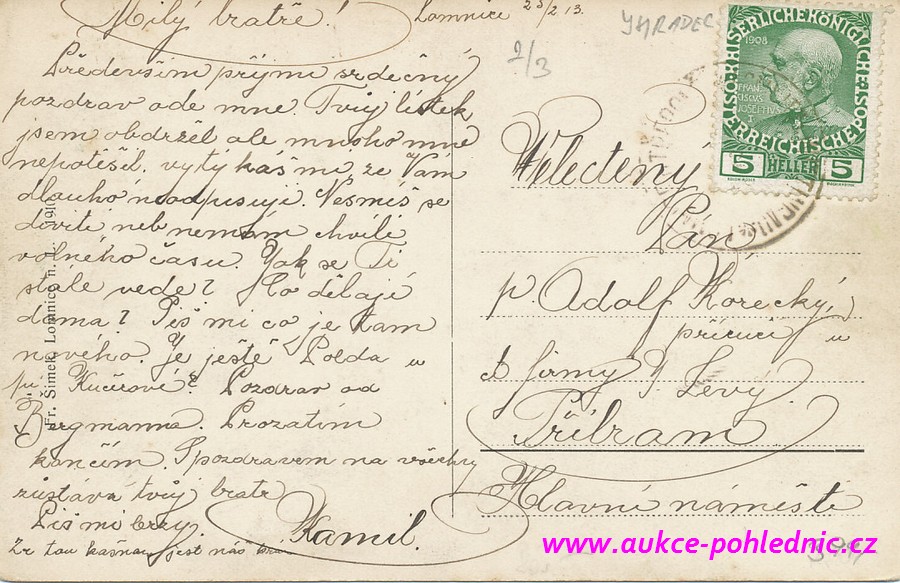 Milý bratře! Lomnice 23/2 13.
JHRADEC
2/3
Předevsím přijmi srdečný
pozdrav ode mne. Tvůj lístek
jsem obdržel ale mnoho mně
nepotěšil. vytýkáš mi, že Vám
dlouho neodpisuji. Nesmíš se
diviti neb nemám chvíli
volného času. Jak se Ti
stále vede? Co dělají
doma? Piš mi co je tam
nového. Je ještě Polda u
pí. Kučírové? Pozdrav od
Bergmanna. Prozatím
končím. S pozdravem na všechny
zůstává tvůj bratr
Kamil.
Piš mi brzy
Za tou kašnou jest náš
Velectený
Pán
p. Adolf Korecký
příručí u
firmy J Levý
Příbram
Hlavní náměstí
Fr. Šimek, Lomnice n.
KAISERLICHE KÖNIGLICHE ÖSTERREICHISCHE POST
1908
FRAN
CISCVS
IOSEPHVS
I
5 HELLER 5
www.aukce-pohlednic.cz